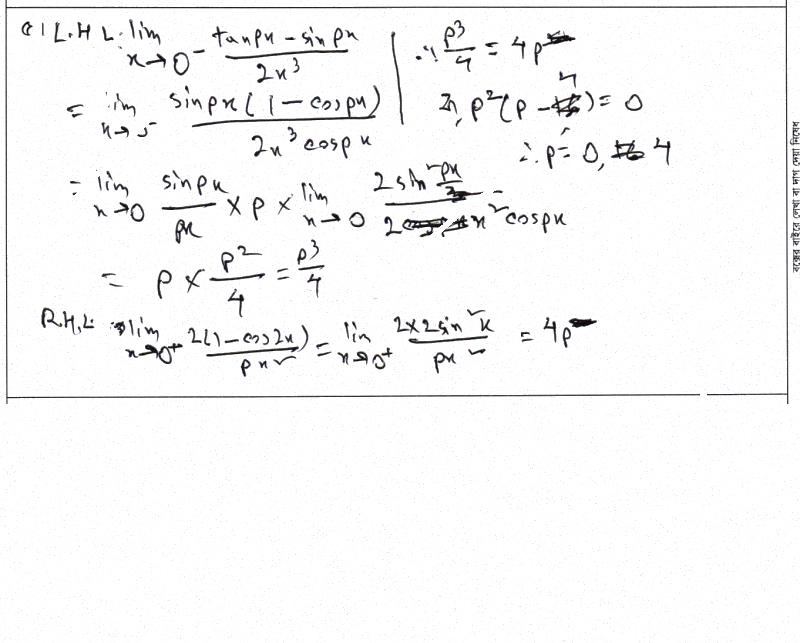 C| L.H.L: lim x→0⁻ (tanpx − sinpx)/(2x³)
= lim x→0⁻ sinpx(1 − cospx)/(2x³cospx)
= lim x→0 (sinpx/px) × p × lim x→0 (2sin²(px/2))/(2x²cospx)
= p × p²/4 = p³/4
R.H.L: lim x→0⁺ 2(1−cos2x)/(px²) = lim x→0⁺ (2×2sin²x)/(px²) = 4p
∴ p³/4 = 4p
বা, p²(p − 4) = 0
∴ p = 0, 4
বক্সের বাইরে লেখা বা দাগ দেয়া নিষেধ